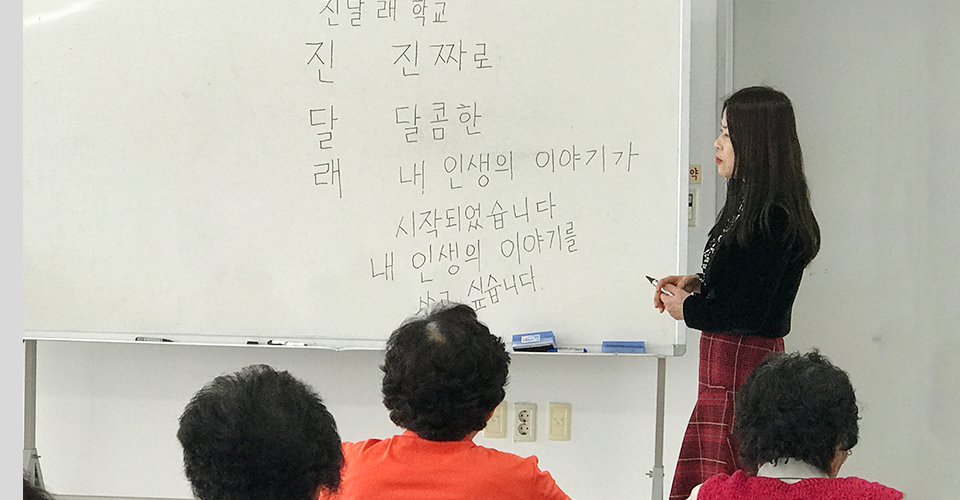 진달래 학교
진 진짜로
달 달콤한
래 내 인생의 이야기가
시작되었습니다
내 인생의 이야기를
싶습니다.
약